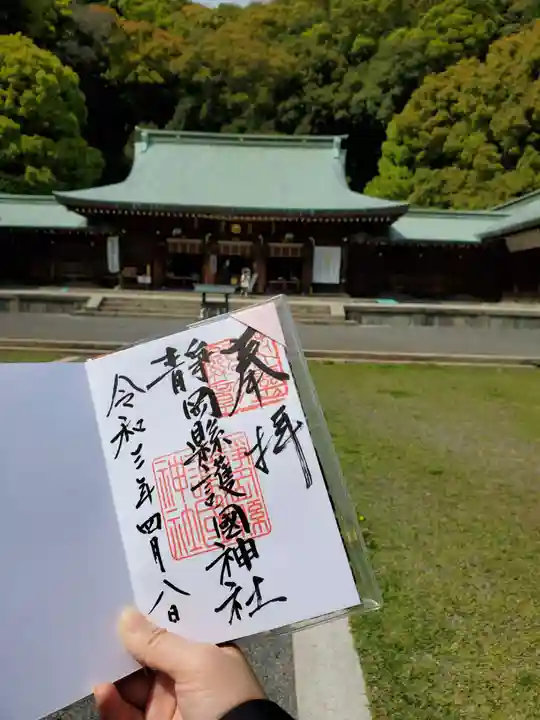 奉拝
靜岡縣護國神社
令和三年四月八日